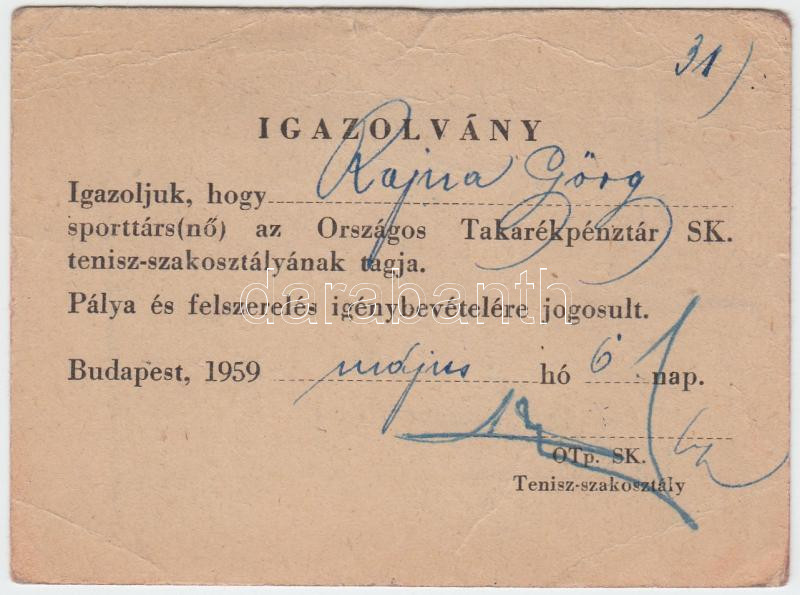 31)
IGAZOLVÁNY
Igazoljuk, hogy Rajna Görg
sporttárs(nő) az Országos Takarékpénztár SK.
tenisz-szakosztályának tagja.
Pálya és felszerelés igénybevételére jogosult.
darabanth
Budapest, 1959 május hó 6 nap.
OTp. SK.
Tenisz-szakosztály